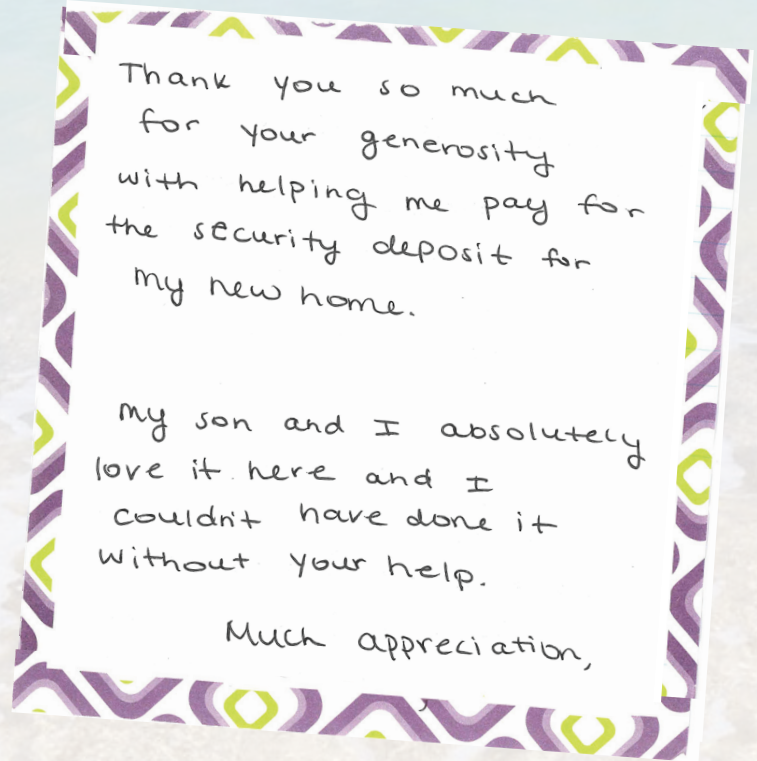 Thank you so much
for your generosity
with helping me pay for
the security deposit for
my new home.
My son and I absolutely
love it here and I
couldn't have done it
without your help.
Much appreciation,